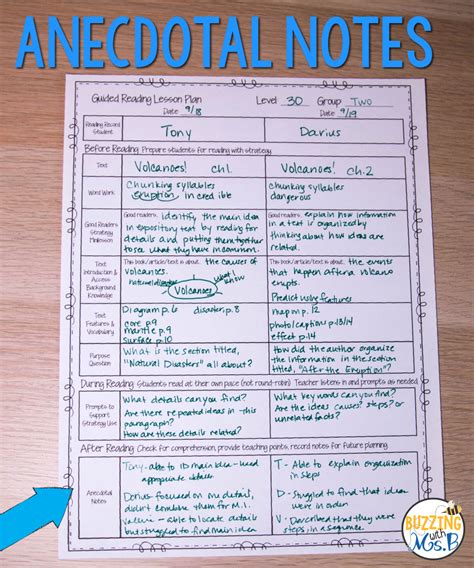 ANECDOTAL NOTES
Guided Reading Lesson Plan
Level 30 Group Two
Date 9/18
Date 9/19
Reading Record Student
Tony
Darius
Before Reading Prepare students for reading with strategy
Text
Volcanoes! ch1.
Volcanoes! ch.2
Word Work
chunking syllables
eruption, in cred ible
chunking syllables
dangerous
Good Readers Strategy Minilesson
Good readers: identify the main idea
in expository text by reading for
details and putting them together
to see what they have in common.
Good readers: explain how information
in a text is organized by
thinking about how ideas are
related.
Text Introduction & Access Background Knowledge
This book/article/text is about: the causes of
volcanoes.
natural disaster
what I know
Volcanoes
This book/article/text is about: the events
that happen after a volcano
erupts.
Predict using features
Text Features & Vocabulary
Diagram p.6 disaster p.8
core p.9
mantle p.9
surface p.10
map p. 12
photo/caption p.13/14
effect p.14
Purpose Question
What is the section titled,
"Natural Disasters" all about?
How did the author organize
the information in the section
titled, "After the Eruption"?
During Reading Students read at their own pace (not round-robin) Teacher listens in and prompts as needed
Prompts to Support Strategy Use
What details can you find?
Are there repeated ideas in this
paragraph?
How are these details related?
What key words can you find?
Are the ideas causes? steps? or
unrelated facts?
After Reading Check for comprehension, provide teaching points, record notes for future planning.
Anecdotal Notes
Tony- able to ID main idea - used
appropriate details
Darius- focused on one detail,
didn't combine them for M.I.
- able to locate details
but struggled to find main idea
T - Able to explain organization
in steps
D - Struggled to find that ideas
were in order
V - Described that they were
steps, in a sequence
BUZZING
with
Ms.B